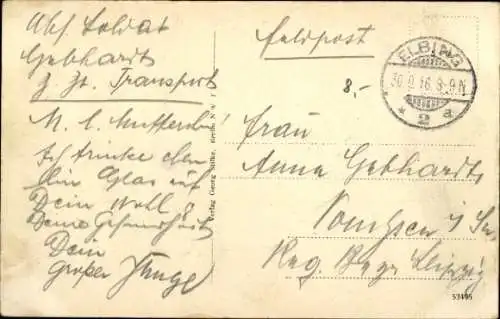 Abs. Soldat
Gebhardt
z. Zt. Transport
M. l. Mutterchen!
Ich trinke eben
ein Glas auf
Dein Wohl &
Deine Gesundheit
Dein
großer Junge
Verlag Georg Stilke, Berlin N.W.
Feldpost
8,-
ELBING
2 a
Frau
Anna Gebhardt
i/Sa.
Reg. Bez. Leipzig
53495